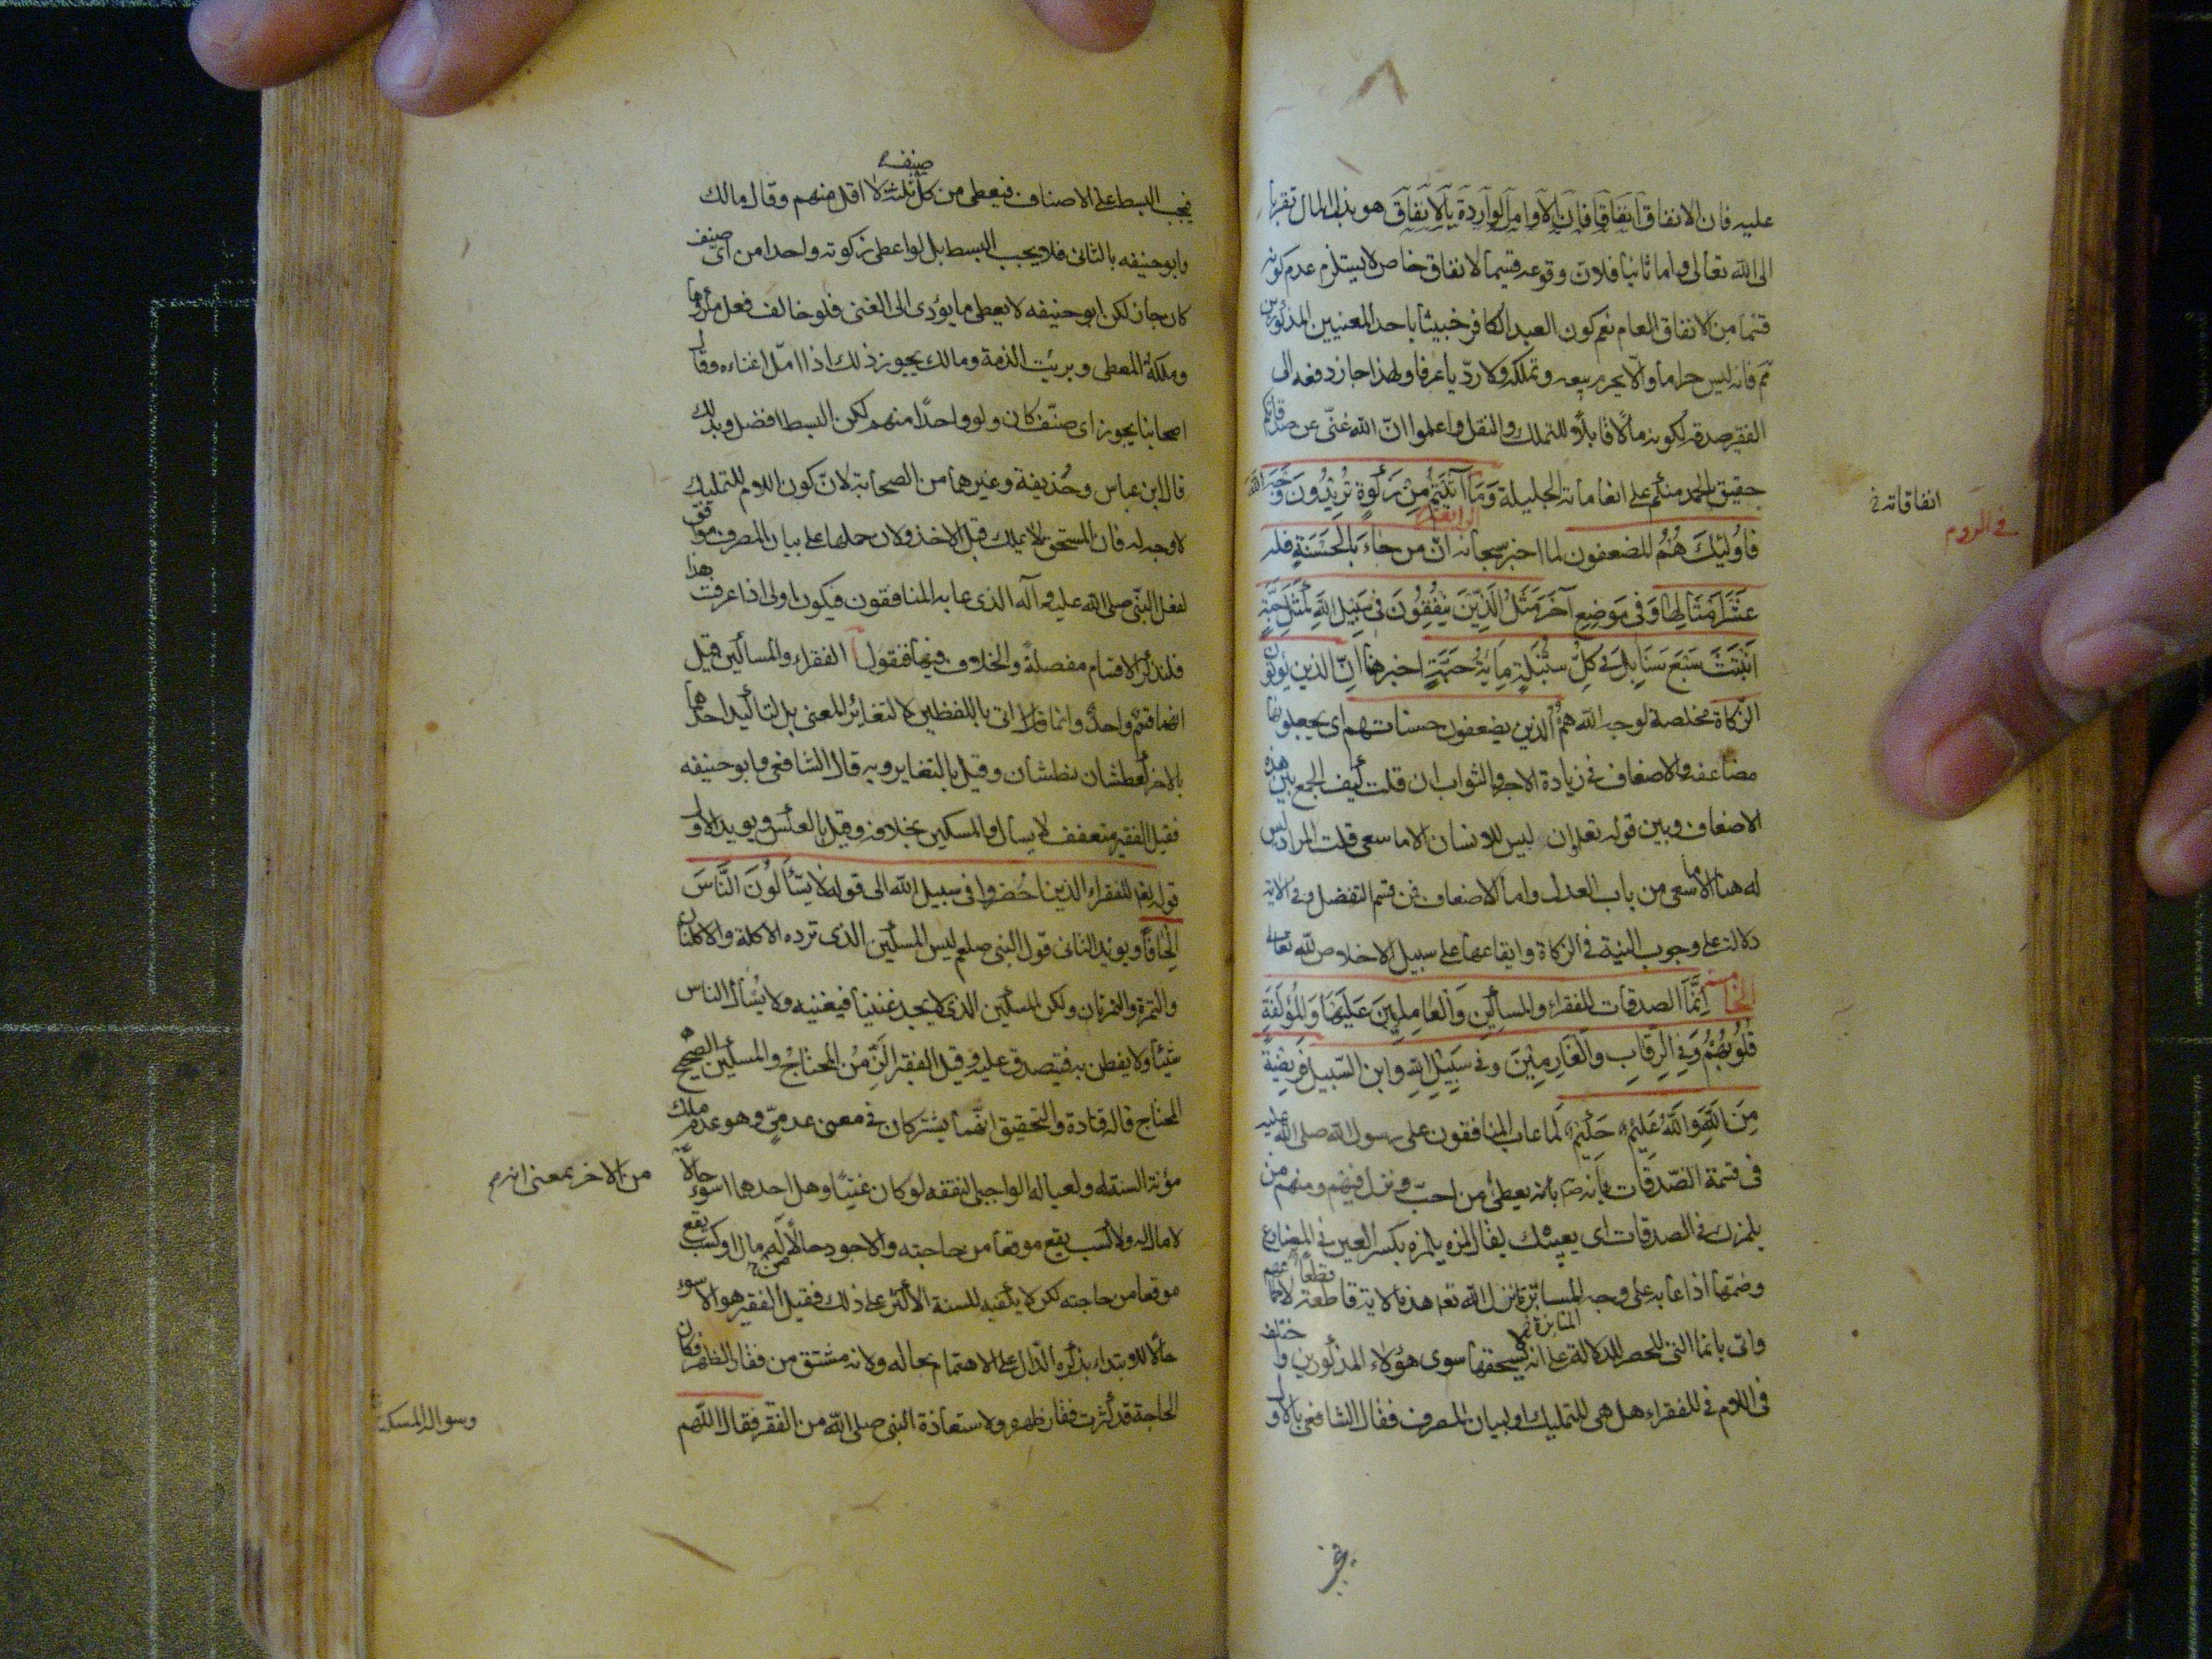 عليه فان الانفاق انفاقا فان الاوامر الواردة بالانفاق هو بذل المال تقربا
الى الله تعالى واما ثانيا فلان وقوعه قسيما لانفاق خاص لا يستلزم عدم كونه
قسما من الانفاق العام نعم كون العبد الكافر خبيثا باحد المعنيين المذكورين
مم فانه ليس حراما والا يحرم بيعه وتملكه ولا رديا عرفا ولهذا جاز دفعه الى
الفقير صدقه لكونه مالا قابلا للتملك والنقل واعلموا ان الله غنى عن صدقاتكم
حقيق بالحمد منكم على انعاماته الجليلة
الرابعة وَمَا آتَيْتُمْ مِنْ زَكَوةٍ تُرِيْدُونَ وَجْهَ الله
فَاوُلئِكَ هُمُ المضعفون لما اخبر سبحانه انّ من جَاءَ بَالْحَسَنَةِ فله
عَشْرُ اَمْثَالِهَا وَفى مَوضِعٍ آخَرَ مَثَلُ الَّذِيْنَ يُنْفِقُونَ فى سَبِيلِ اللهِ كَمَثَلِ حَبَّةٍ
اَنْبَتَتْ سَبْعَ سَنَابِلَ فى كلِّ سُنْبُلَةٍ مِايَةُ حَبَّةٍ اخبر هنا انّ الذين يؤتون
الزكاة مخلصة لوجه الله هم الذين يضعفون حسناتهم اى يجعلونها
مضاعفة والاضعاف فى زيادة الاجر والثواب ان قلت كيف الجمع بين هذه
الاضعاف وبين قوله تعلى وان ليس للانسان الا ما سعى قلت المراد ليس
له هنا الا ما سعى من باب العدل واما الاضعاف فمن قسم التفضل وفى الاية
دلالة على وجوب النية فى الزكاة وايقاعها على سبيل الاخلاص لله تعالى
الخامسة اِنَّمَا الصدقات للفقراء والمساكين وَالْعَامِلِيْنَ عَلَيْهَا وَالْمُؤَلَّفَةِ
قُلُوْبُهُمْ وَفِى الرِّقَابِ وَالْغَارِمِيْنَ وفى سَبِيْلِ اللهِ وابن السّبيل فَرِيْضَةً
مِنَ اللّهِ وَاللَّهُ عَلِيْمٌ حَكِيْمٌ لما عاب المنافقون على رسول الله صلى الله عليه
فى قسمة الصّدقات بانه يعطى من احبّ ونزل فيهم ومنهم من
يلمزك فى الصدقات اى يعيبك يقال لمزه يلمزه بكسر العين فى المضارع
وضمّها اذا عابه على وجه المساترة انزل الله تعه هذه الاية قاطعة لاطماعهم
واتى بانما التى للحصر للدلالة على انه لا يستحقها سوى هؤلاء المذكورين واختلف
فى اللام فى للفقراء هل هى للتمليك او لبيان المصرف فقال الشافعى بالاول
انفاقاته
فى الروم
فيجب البسط على الاصناف فيعطى من كل صنف ثلثة لا اقل منهم وقال مالك
وابو حنيفه بالثانى فلا يجب البسط بل لو اعطى زكوته واحدا من اىّ صنف
كان جاز لكن ابو حنيفه لا يعطى ما يؤدى الى الغنى فلو خالف فعل مكروها
وملكه المعطى وبريئت الذمة ومالك يجوز ذلك اذا امّل اغناءه وقال
اصحابنا يجوز اى صنف كان ولو واحدًا منهم لكن البسط افضل وبذلك
قال ابن عباس وحُذيفة وغيرهما من الصحابة لانّ كون اللام للتمليك
لا وجه له فان المستحق لا يملك قبل الاخذ ولان حملها على بيان المصرف موافق
لفعل النبّى صلى الله عليه وآله الذى عابه المنافقون فيكون اولى اذا عرفت هذا
فلنذكر الاقسام مفصلة والخلاف فيها فنقول الفقراء والمساكين قيل
انهما قسم واحد وانما اتى باللفظين لا لتغائر المعنى بل لتأكيد احدهما
بالاخر كعطشان نطشان وقيل بالتغاير وبه قال الشافعى وابو حنيفه
فقيل الفقير متعفف لا يسال والمسكين بخلافه وقيل بالعكس ويويد الاول
قوله تعه للفقراء الذين احُصروا فى سبيل الله الى قوله لا يَسْأَلُونَ النَّاسَ
اِلْحَافًا ويويد الثانى قول النبى صلعم ليس المسكين الذى ترده الاكلة والاكلتان
والتمرة والتمرتان ولكن المسكين الذى لا يجد غنيا فيغنيه ولا يسُأل الناس
شيئا ولا يفطن به فيتصدق عليه وقيل الفقير الزَّمِنُ المحتاج والمسكين الصحيح
المحتاج قاله قتادة والتحقيق انهما يشتركان فى معنى عدمىّ وهو عدم ملك
مؤنة السنة له ولعياله الواجبى النفقه لو كان غنيّا وهل احدهما اسوء حالا
لا مال له ولا كسب يقع موقعا من حاجته والاجود حالا من له مال او كسب يقع
موقعا من حاجته لكن لا يكفيه للسنة الاكثر على ذلك فقيل الفقير هو الاسوء
حالا للابتداء بذكره الدّال على الاهتمام بحاله ولانه مشتق من فقار الظهر فكان
الحاجة قد كسرت فقار ظهره ولاستعاذة النبى صلى الله من الفقر فقال اللّهم
من الاخر بمعنى انه
وسوال المسكنة